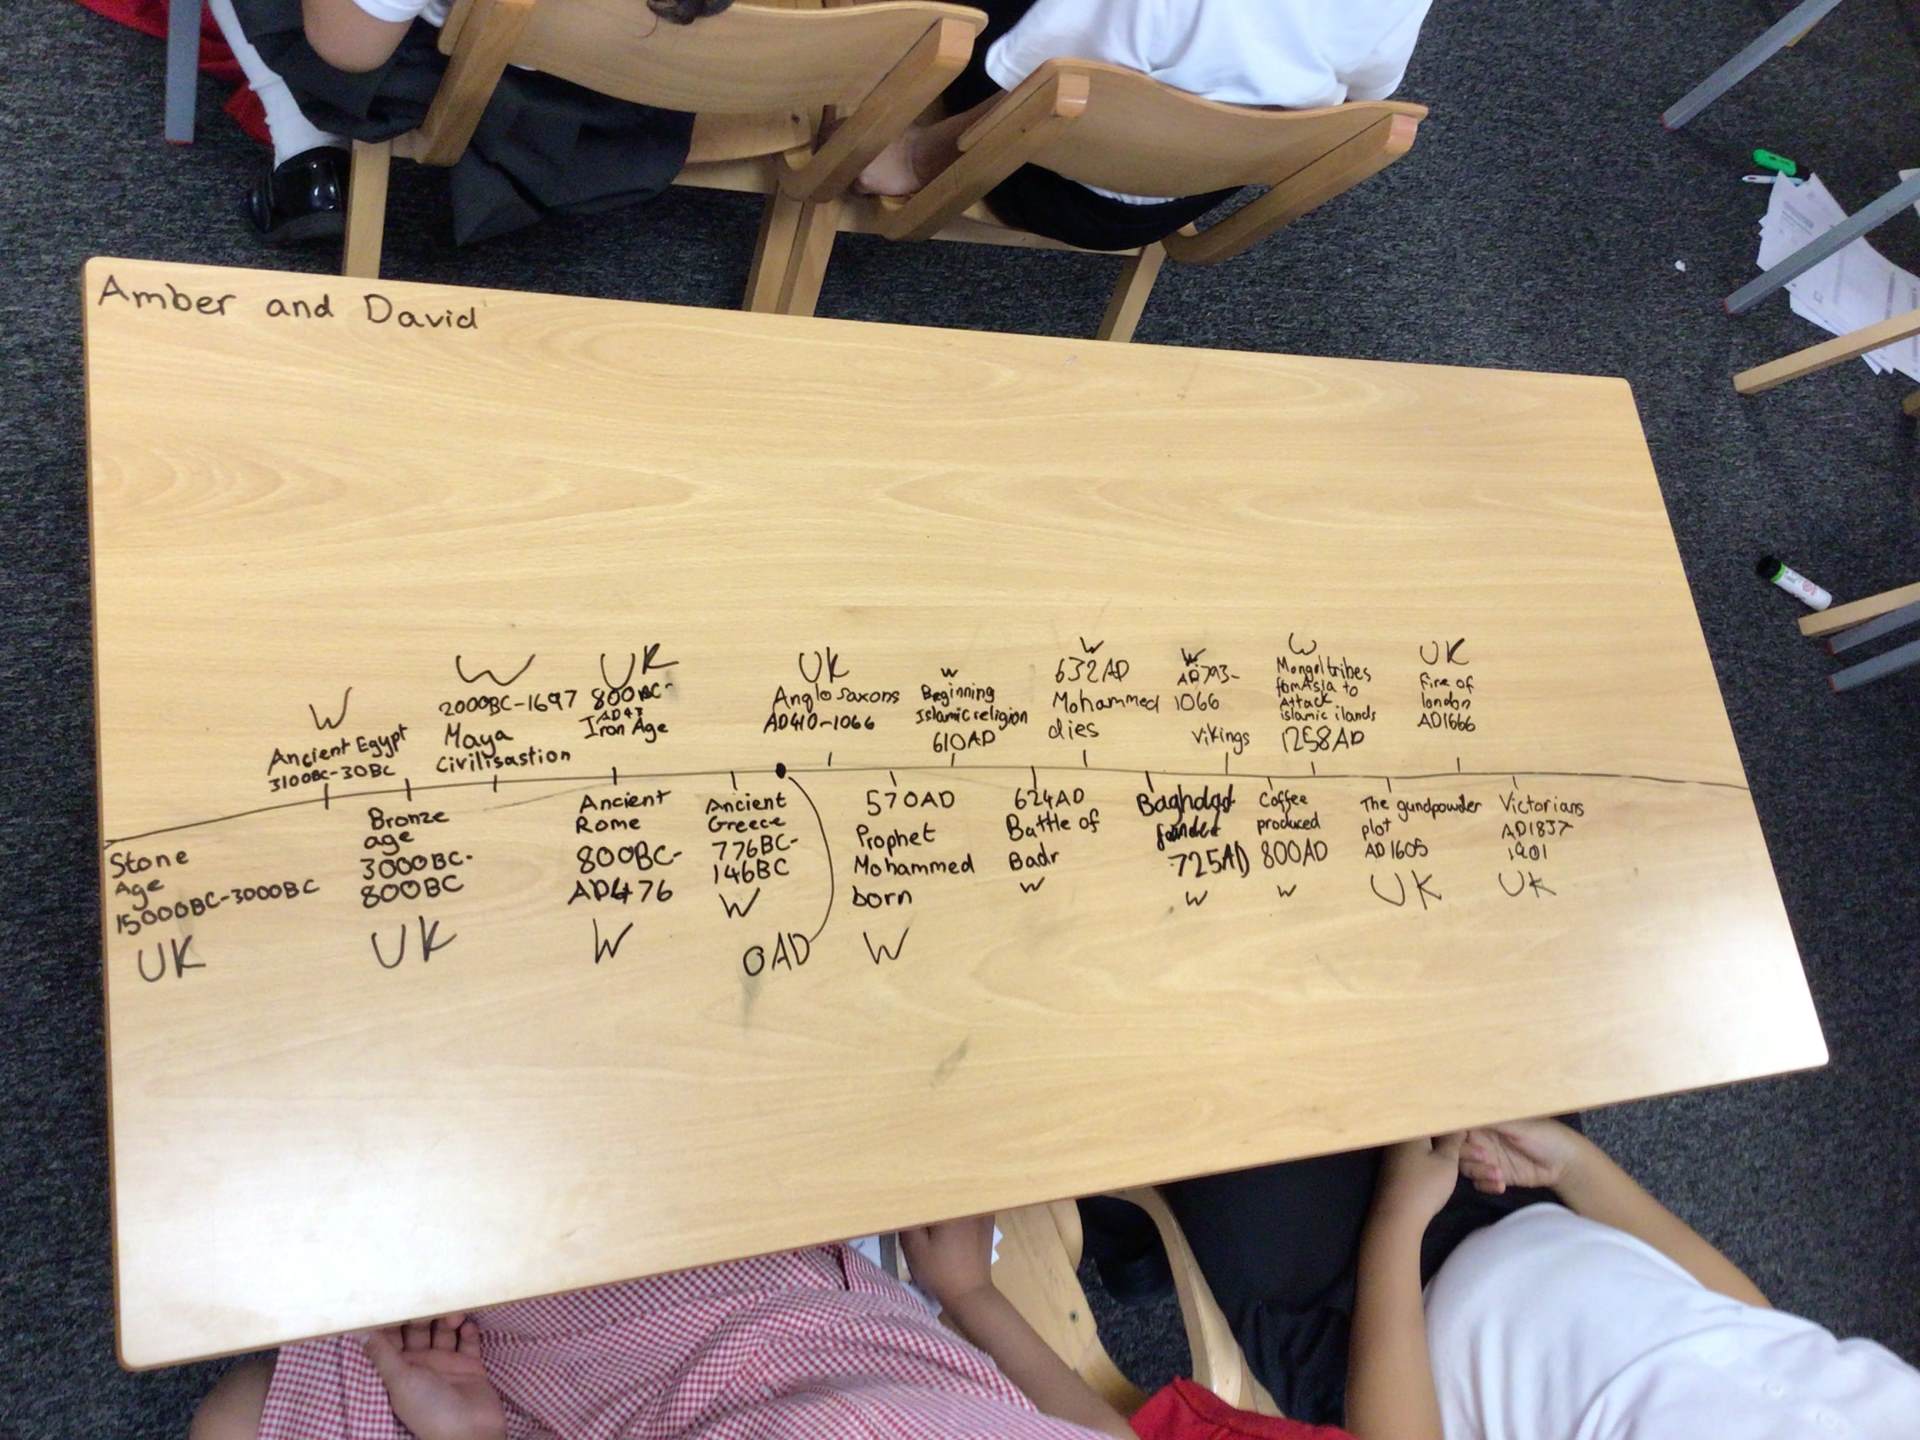 Amber and David
W
Ancient Egypt
3100BC-30BC
W
2000BC-1697
Maya
Civilisastion
UK
800BC-
AD43
Iron Age
UK
Anglo saxons
AD410-1066
W
Beginning
Islamic religion
610AD
W
632AD
Mohammed
dies
W
AD793-
1066
Vikings
W
Mongol tribes
fomAsia to
Attack
islamic ilands
1258AD
UK
Fire of
london
AD1666
Stone
Age
15000BC-3000BC
UK
Bronze
age
3000BC-
800BC
UK
Ancient
Rome
800BC-
AD476
W
Ancient
Greece
776BC-
146BC
W
0AD
570AD
Prophet
Mohammed
born
W
624AD
Battle of
Badr
W
Baghdad
725AD
W
Coffee
produced
800AD
W
The gundpowder
plot
AD1605
UK
Victorians
AD1837
1901
UK